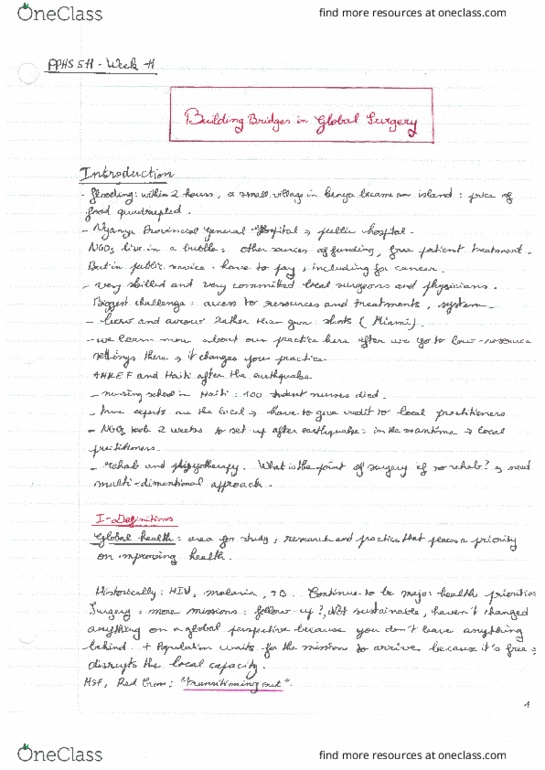 OneClass
find more resources at oneclass.com
PPHS 511 - Week 11
Building Bridges in Global Surgery
Introduction
- flooding: within 2 hours, a small village in Kenya became an island: price of
food quadrupled.
- Nyanza Provincial General Hospital → public hospital.
NGOs live in a bubble: other sources of funding, free patient treatment.
But in public service: have to pay, including for cancer.
- very skilled and very committed local surgeons and physicians.
Biggest challenge: access to resources and treatments, system
- bow and arrow rather than gun shots (Miami).
- we learn more about our practice here after we go to low-resource
settings there → it changes your practice.
and Haiti after the earthquake
- nursing school in Haiti: 100 student nurses died.
- true experts are the local → have to give credit to local practitioners
- NGOs took 2 weeks to set up after earthquake: in the meantime → local
practitioners.
- rehab and physiotherapy. What is the point of surgery if no rehab? → need
multi-dimentional approach.
I-Definitions
Global health: area for study, research and practice that places a priority
on improving health.
Historically: HIV, malaria, TB. Continue to be major health priorities
Surgery: more missions: follow up?, Not sustainable, haven't changed
anything on a global perspective because you don't leave anything
behind. + Population waits for the mission to arrive because it's free →
disrupts the local capacity.
MSF, Red Cross: "transitioning out".
1
OneClass
find more resources at oneclass.com